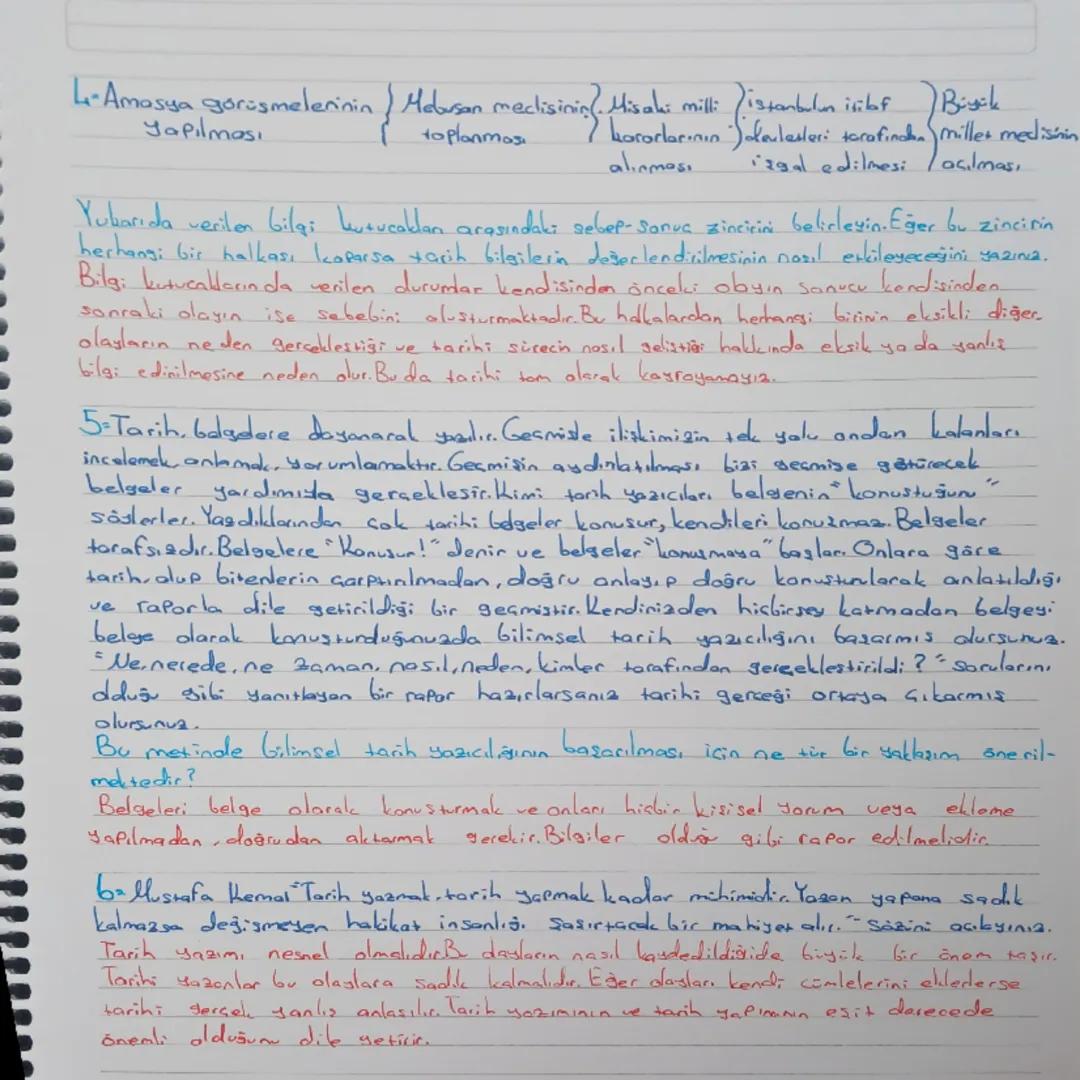 4-Amasya görüşmelerinin } Mebusan meclisinin } Misakı milli } istanbulun itilaf } Büyük
yapılması toplanması kararlarının devletleri tarafından millet meclisinin
alınması işgal edilmesi açılması
Yukarıda verilen bilgi kutucukları arasındaki sebep-sonuç zincirini belirleyin. Eğer bu zincirin
herhangi bir halkası koparsa tarih bilgilerin değerlendirilmesinin nasıl etkileyeceğini yazınız.
Bilgi kutucuklarında verilen durumlar kendisinden önceki olayın sonucu kendisinden
sonraki olayın ise sebebini oluşturmaktadır. Bu halkalardan herhangi birinin eksikli diğer
olayların neden gerçekleştiği ve tarihi sürecin nasıl geliştiği hakkında eksik ya da yanlış
bilgi edinilmesine neden olur. Bu da tarihi tam olarak kavrayamayız.
5-Tarih, belgelere dayanarak yazılır. Geçmişle ilişkimizin tek yolu ondan kalanları
incelemek, anlamak, yorumlamaktır. Geçmişin aydınlatılması bizi geçmişe götürecek
belgeler yardımıyla gerçekleşir. Kimi tarih yazıcıları belgenin "konuştuğunu"
söylerler. Yazdıklarından çok tarihi belgeler konuşur, kendileri konuşmaz. Belgeler
tarafsızdır. Belgelere "Konuşun!" denir ve belgeler "konuşmaya" başlar. Onlara göre
tarih, olup bitenlerin çarpıtılmadan, doğru anlayıp doğru konuşturularak anlatıldığı
ve raporla dile getirildiği bir geçmiştir. Kendinizden hiçbirşey katmadan belgeyi
belge olarak konuşturduğunuzda bilimsel tarih yazıcılığını başarmış olursunuz.
"Ne, nerede, ne zaman, nasıl, neden, kimler tarafından gerçekleştirildi?" sorularını
olduğu gibi yanıtlayan bir rapor hazırlarsanız tarihi gerçeği ortaya çıkarmış
olursunuz.
Bu metinde bilimsel tarih yazıcılığının başarılması için ne tür bir yaklaşım öneril-
mektedir?
Belgeleri belge olarak konuşturmak ve onları hiçbir kişisel yorum veya ekleme
yapılmadan, doğrudan aktarmak gerekir. Bilgiler olduğu gibi rapor edilmelidir.
6-Mustafa Kemal "Tarih yazmak, tarih yapmak kadar mühimdir. Yazan yapana sadık
kalmazsa değişmeyen hakikat insanlığı şaşırtacak bir mahiyet alır." Sözünü açıklayınız.
Tarih yazımı nesnel olmalıdır. B olayların nasıl kaydedildiğide büyük bir önem taşır.
Tarihi yazanlar bu olaylara sadık kalmalıdır. Eğer olayları kendi cümlelerini eklerlerse
tarihi gerçek yanlış anlaşılır. Tarih yazımının ve tarih yapımının eşit derecede
önemli olduğunu dile getirir.